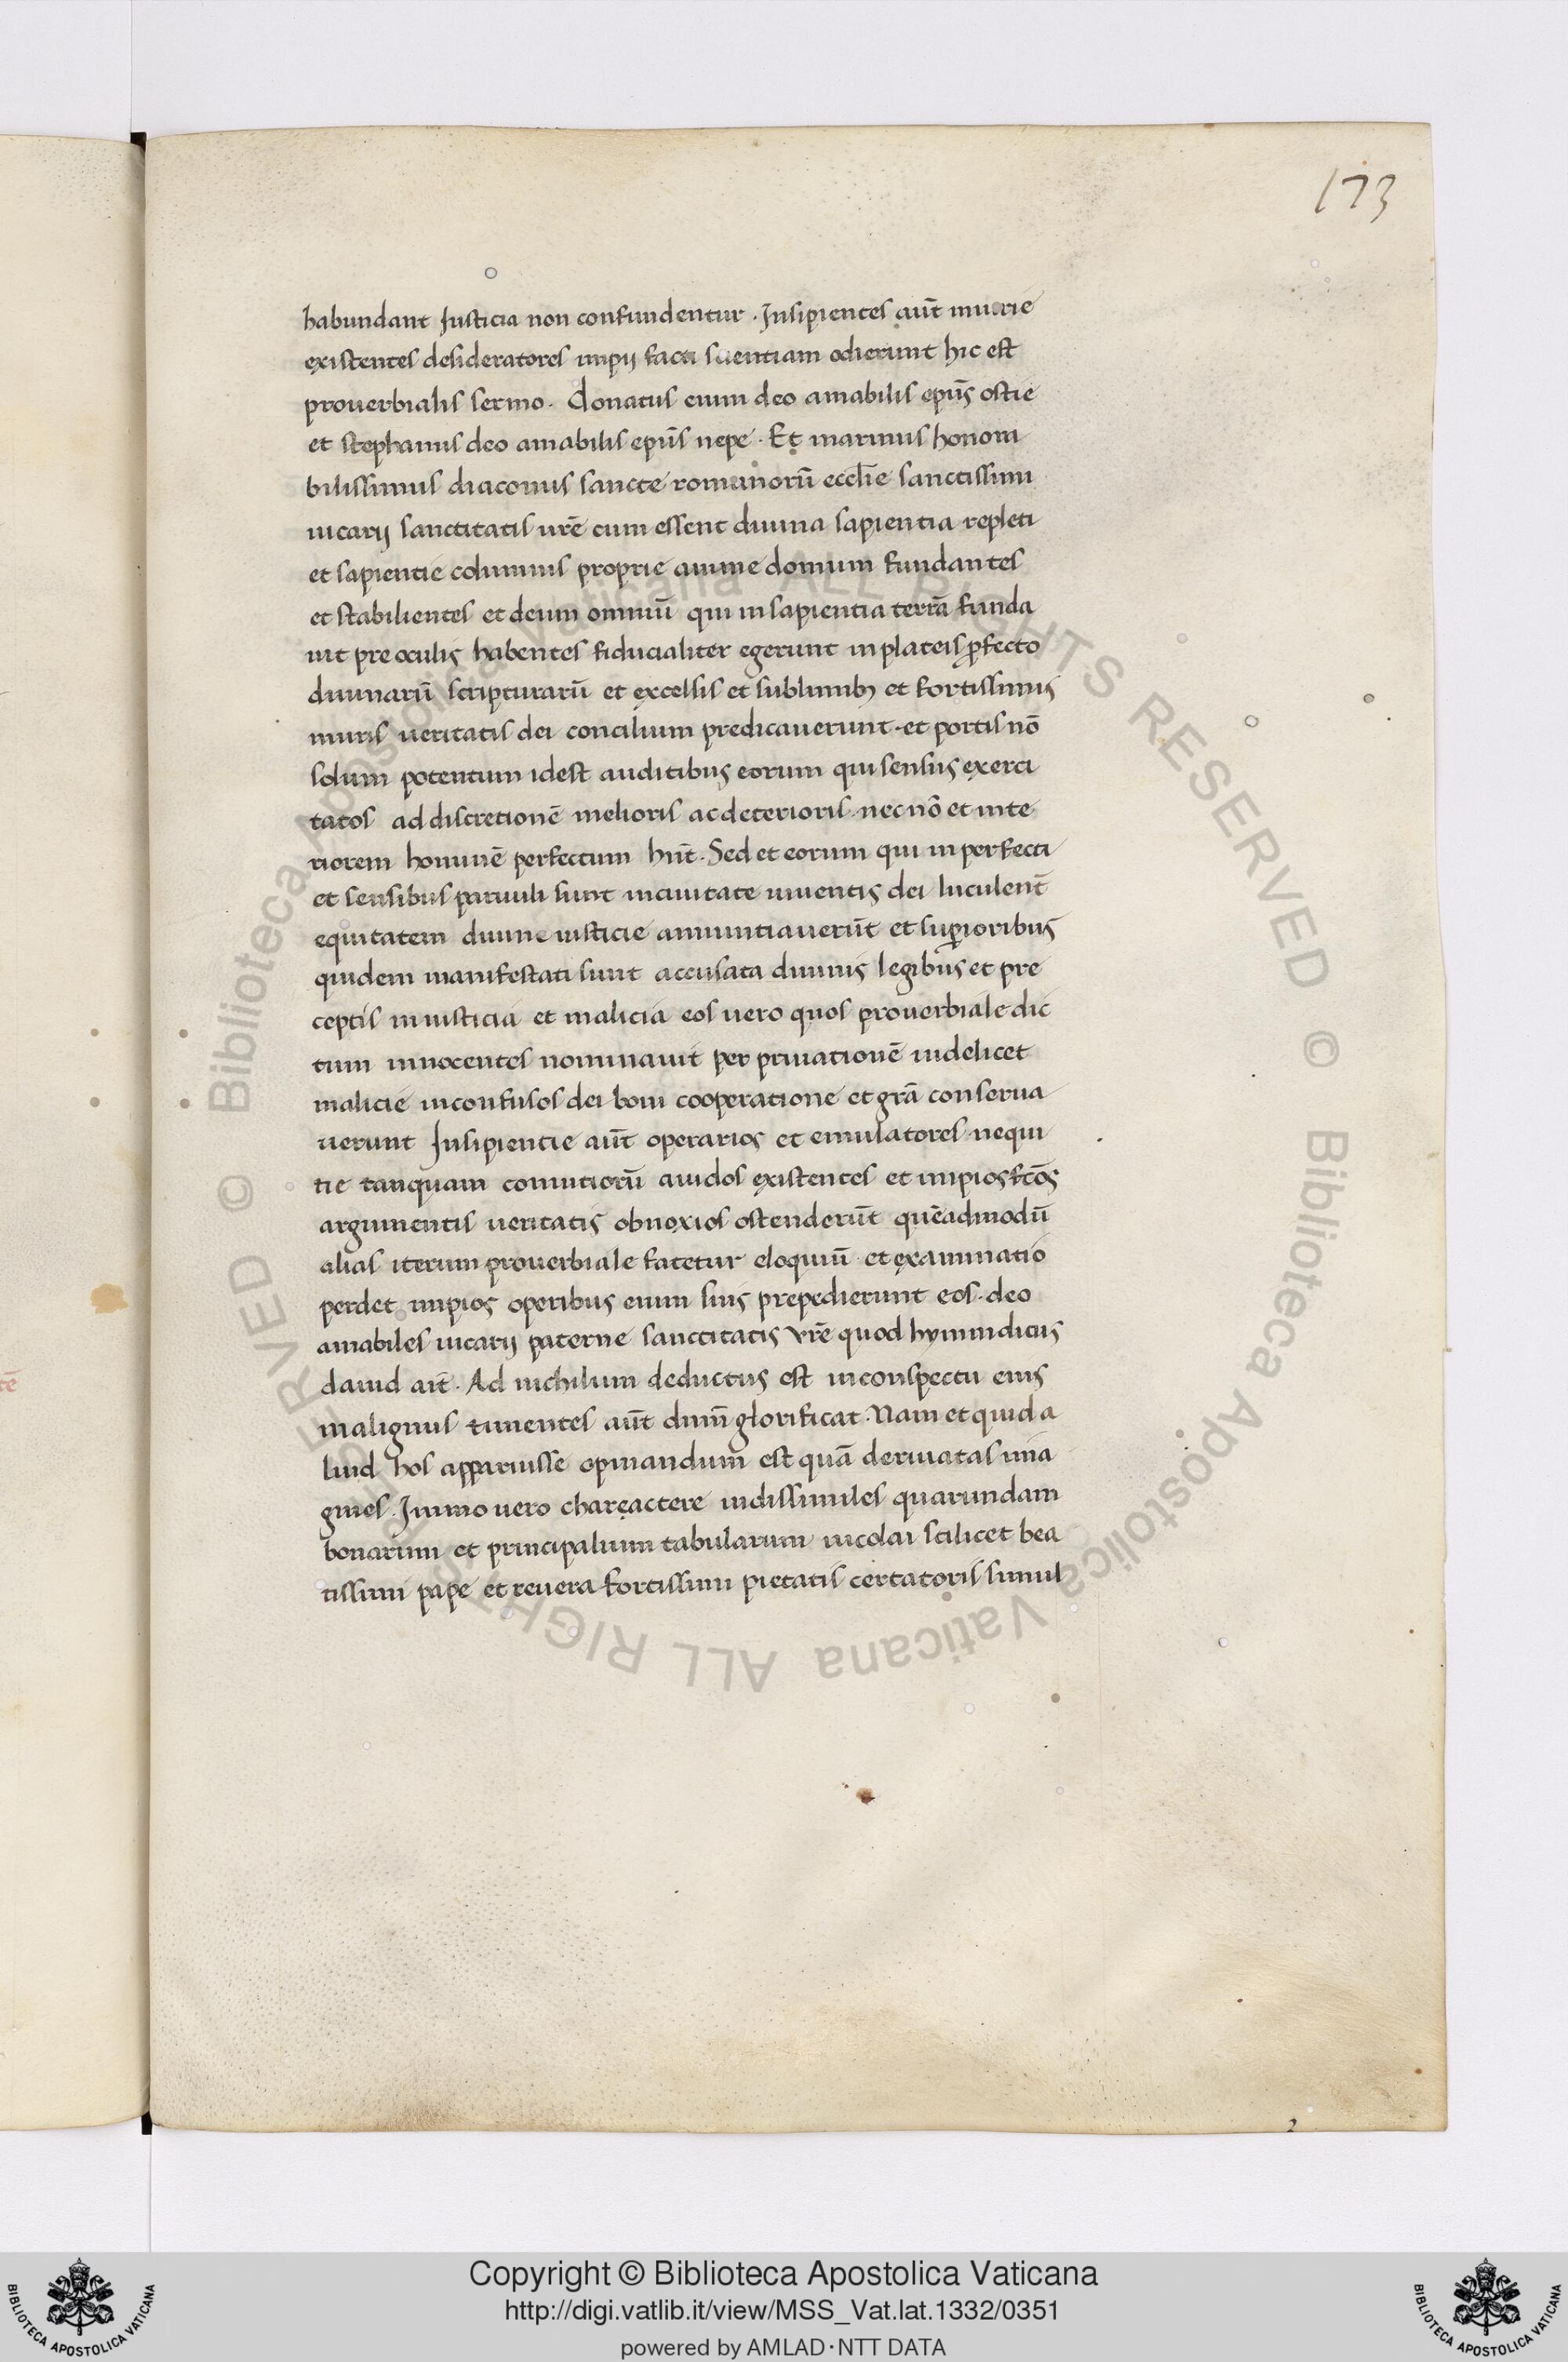 173
habundant Justicia non confundentur . Jnsipientes aut̄ iniurie
existentes desideratores impij facti scientiam odierunt hic est
prouerbialis sermo . Donatus enim deo amabilis ep̄us ostie
et stephanus deo amabilis ep̄us nepe . Et marinus honora
bilissimus diaconus sancte romanorū eccl̄ie sanctissimi
uicarij sanctitatis ur̄e cum essent diuina sapientia repleti
et sapientie columnis proprie anime domum fundantes
et stabilientes et deum omniū qui in sapientia terrā funda
uit pre oculis habentes fiducialiter egerunt in plateis p̱fecto
diuinarū scripturarū et excelsis et sublimibꝫ et fortissimis
muris ueritatis dei concilium predicauerunt . et portis nō
solum potentum idest auditibus eorum qui sensus exerci
tatos ad discretionē melioris ac deterioris . nec nō et inte
riorem hominē perfectum hn̄t . Sed et eorum qui inperfecti
et sensibus paruuli sunt in ciuitate uiuentis dei luculent̄
equitatem diuine iusticie annuntiauerūt et suꝑioribus
quidem manifestati sunt accusata diuinis legibus et pre
ceptis iniusticia et malicia eos uero quos prouerbiale dic
tum innocentes nominauit per priuationē uidelicet
malicie inconfusos dei boni cooperatione et gr̄a conserua
uerunt Jnsipientie aut̄ operarios et emulatores nequi
tie tanquam conuitiorū auidos existentes et impios fc̄os
argumentis ueritatis obnoxios ostenderūt quēadmodū
alias iterum prouerbiale fatetur eloquiū et examinatio
perdet impios operibus enim suis prepedierunt eos . deo
amabiles uicarij paterne sanctitatis vr̄e quod hymnidicus
dauid ait . Ad nichilum deductus est in conspectu eius
malignus timentes aut̄ dnm̄ glorificat . Nam et quid a
liud hos apparuisse opinandum est quā deriuatas ima
gines . Jmmo uero charactere indissimiles quarundam
bonarum et principalium tabularum nicolai scilicet bea
tissimi pape et reuera fortissimi pietatis certatoris simul
Copyright © Biblioteca Apostolica Vaticana
http://digi.vatlib.it/view/MSS_Vat.lat.1332/0351
powered by AMLAD·NTT DATA